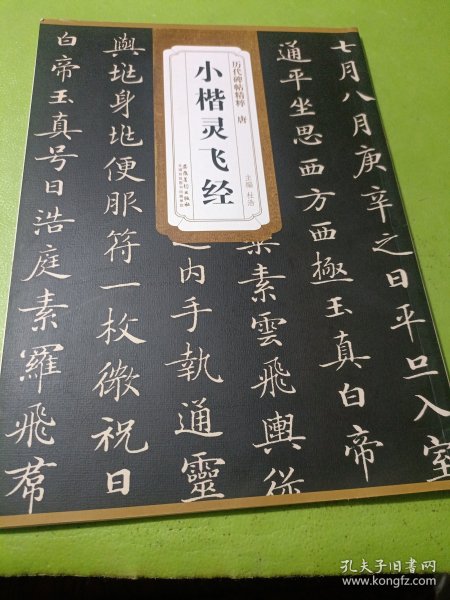 历代碑帖精粹 唐
小楷灵飞经
主编 杜浩
安徽美术出版社
七月八月庚辛之日平旦入室
通平坐思西方西極玉真白帝
素雲飛輿從
之内手執通靈
與兆身兆便服符一枚微祝曰
白帝玉真号曰浩庭素羅飛帬
孔夫子旧书网
www.kongfz.com